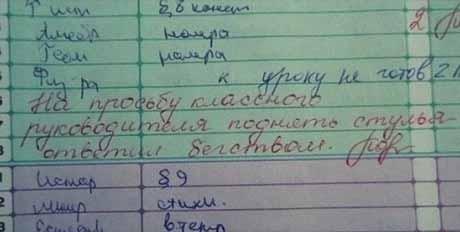 §, 6 конспект
2
Алгебр номера
Геом номера
Физ-ра к уроку не готов 2
На просьбу классного
руководителя поднять стулья
ответил бегством.
1 Истор § 9
2 Литер стихи.
3 в тетр